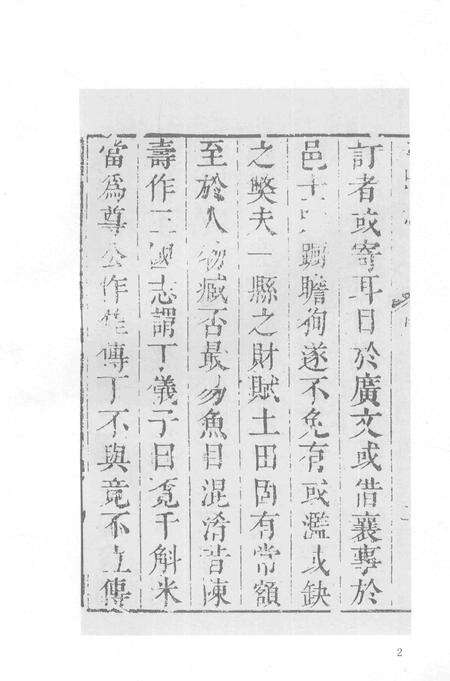 訂者或寄耳目於廣文或借襄專於
邑士大 矚瞻徇遂不免有或濫或缺
之獘夫一縣之財賦土田固有常額
至於人物臧否最易魚目混淆昔陳
壽作三國志謂丁儀子曰覓千斛米
當為尊公作佳傳丁不與竟不立傳
2